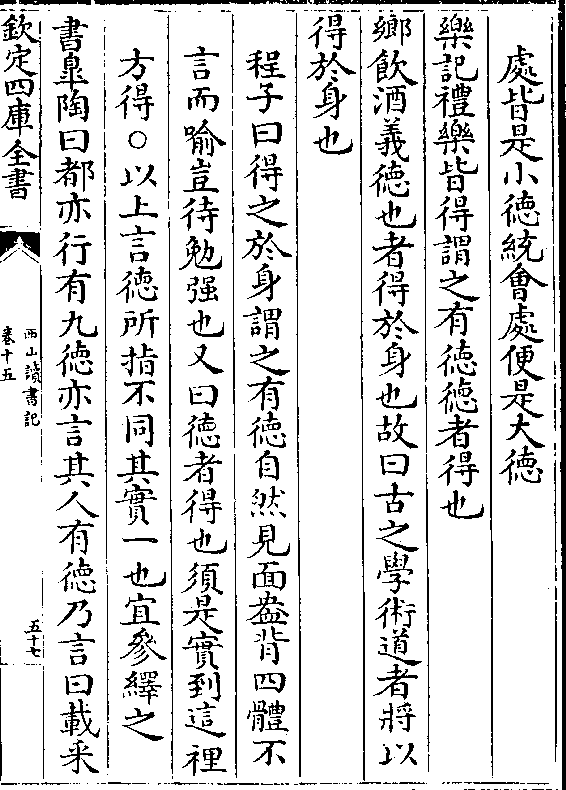 處皆是小徳統會處便是大徳
樂記禮樂皆得謂之有徳徳者得也
鄉飲酒義徳也者得於身也故曰古之學術道者將以
得於身也
程子曰得之於身謂之有徳自然見面盎背四體不
言而喻豈待勉强也又曰徳者得也須是實到這裡
方得○以上言徳所指不同其實一也宜參繹之
書臯陶曰都亦行有九徳亦言其人有徳乃言曰載采
欽定四庫全書
西山讀書記
卷十五
五十七